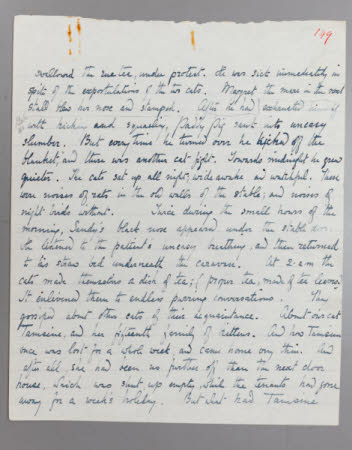 199
swallowed the rue tea, under protest. He was sick immediately in
spite of the expostulations of the two cats. Maggret the mare in the next
stall blew her nose and stamped. After he had exhausted himself
with kicking and squealing, Paddy Pig sank into uneasy
slumber. But every time he turned over he kicked off the
blanket, and there was another cat fight. Towards midnight he grew
quieter. The cats sat up all night, wide awake and watchful. There
were noises of rats in the old walls of the stable; and noises of
night birds without. Twice during the small hours of the
morning, Sandy's black nose appeared under the stable door.
He listened to the patient's uneasy breathing, and then returned
to his straw bed underneath the caravan. At 2 a.m the
cats made themselves a dish of tea; (proper tea, made of tea leaves)
It enlivened them to endless purring conversations. They
gossiped about other cats of their acquaintance. About our cat
Tamsine, and her fifteenth family of kittens. And how Tamsine
once was lost for a whole week, and came home very thin. And
after all, she had been no further off than the next door
house, which was shut up empty, while the tenants had gone
away for a week's holiday. But what had Tamsine